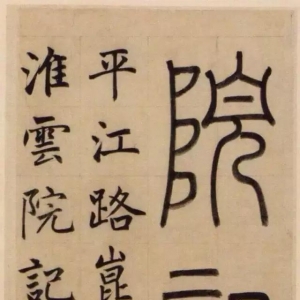 院
平江路崑
淮雲院記